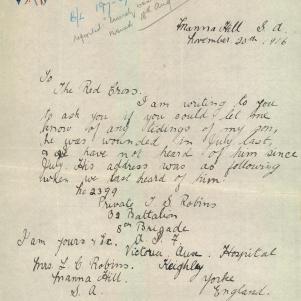 Manna Hill S. A
November 20th, 1916
To
The Red Cross.
I am writing to you
to ask you if you could let me
know of any tidings of my son,
he was wounded in July last,
& have not heard of him since
July. His address was as following
when we last heard of him.
No 2399
Private T S Robins
32 Battalion
8th Brigade
I am yours &c. A I F
Victoria Aux. Hospital
Mrs. L C Robins. Keighley
Manna Hill. Yorke
S. A England.